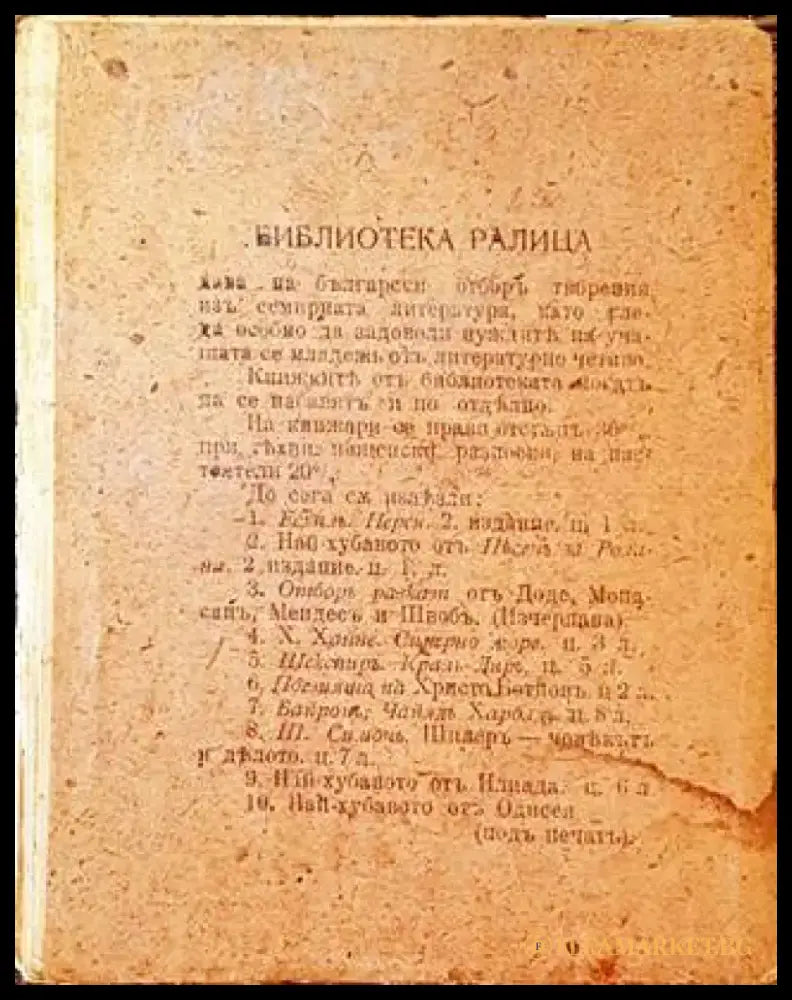 БИБЛИОТЕКА РАЛИЦА
дава на български отборъ творения
изъ семирната литература, като гле-
да особно да задоволи нуждитѣ на уча-
щата се младежь отъ литературно четиво.
Книжкитѣ отъ библиотеката могатъ
да се набавятъ и по отдѣлно.
На книжари се прави отстъпъ 30%
при тѣхни разноски, на нас-
тоятели 20%
До сега сѫ излѣзли:
1. Есхилъ. Перси. 2. издание. ц. 1 л.
2. Най-хубавото отъ Пѣсень за Рола-
нд. 2 издание. ц. 1 л.
3. Отборъ разкази отъ Доде, Мопа-
санъ, Мендесъ и Швобъ. (Изчерпана)
4. Х. Хайне. Северно море. ц. 3 л.
5. Шекспиръ. Краль Лиръ, ц. 5 л.
6. на Христа Ботйовъ. ц 2 л.
7. Байронъ, Чайлдъ Харолдъ ц. 8 л.
8. Ш. Симонъ. Шилеръ — човѣкътъ
и дѣлото. ц. 7 л.
9. Най-хубавото отъ Илиада. ц. 6 л
10. Най-хубавото отъ Одисея
(подъ печатъ).